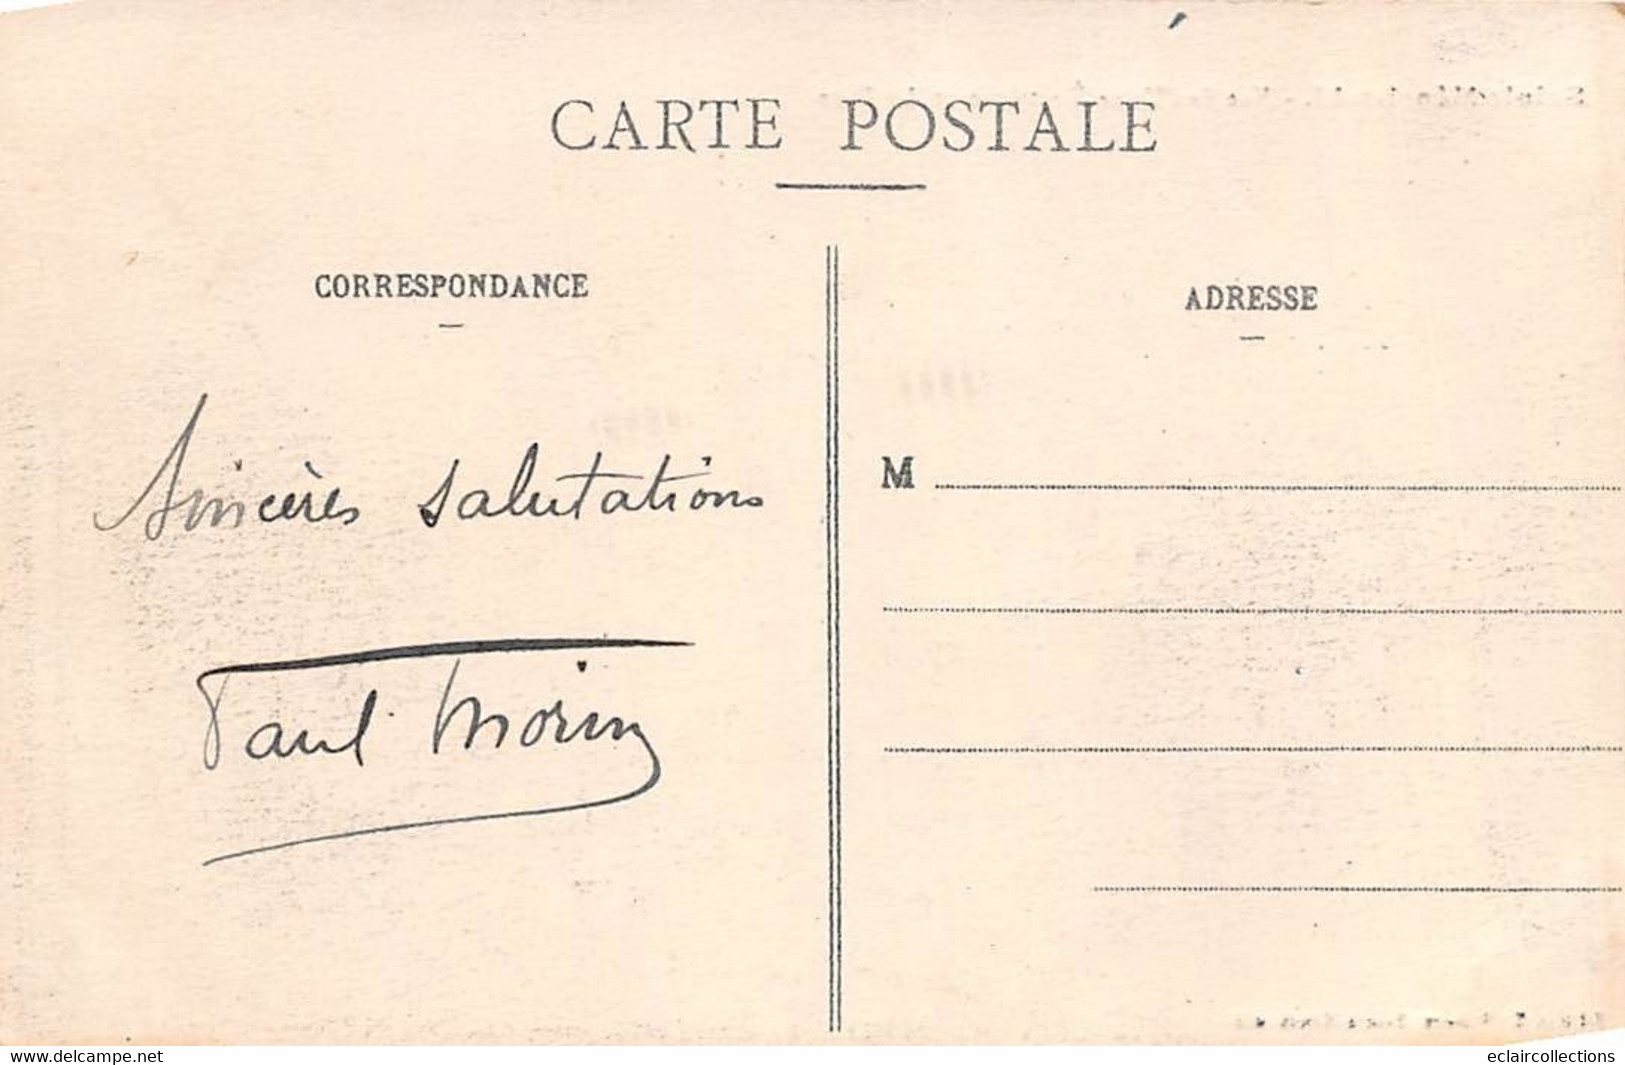 CARTE POSTALE
CORRESPONDANCE
ADRESSE
Sincères salutations
M
Paul Morin
delcampe.net
eclaircollections